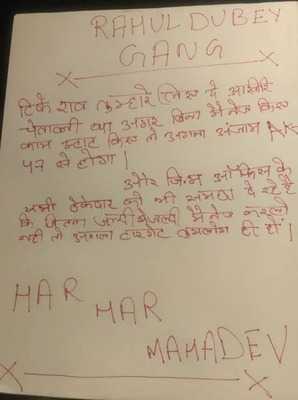 RAHUL DUBEY
GANG
टिके राव तुम्हारे लिए ये आखिरि
चेतावनी था अगर बिना मैनेज किए
काम स्टार्ट किए तो अगला अंजाम AK-
47 से होगा।
और जिस ऑफिस के
सभी ठेकेदार को भी समझा दे रहे हैं
कि जितना जल्दी से जल्दी मैनेज कर लो
नही तो अगला टारगेट तुमलोग ही हो।
HAR
HAR
MAHADEV